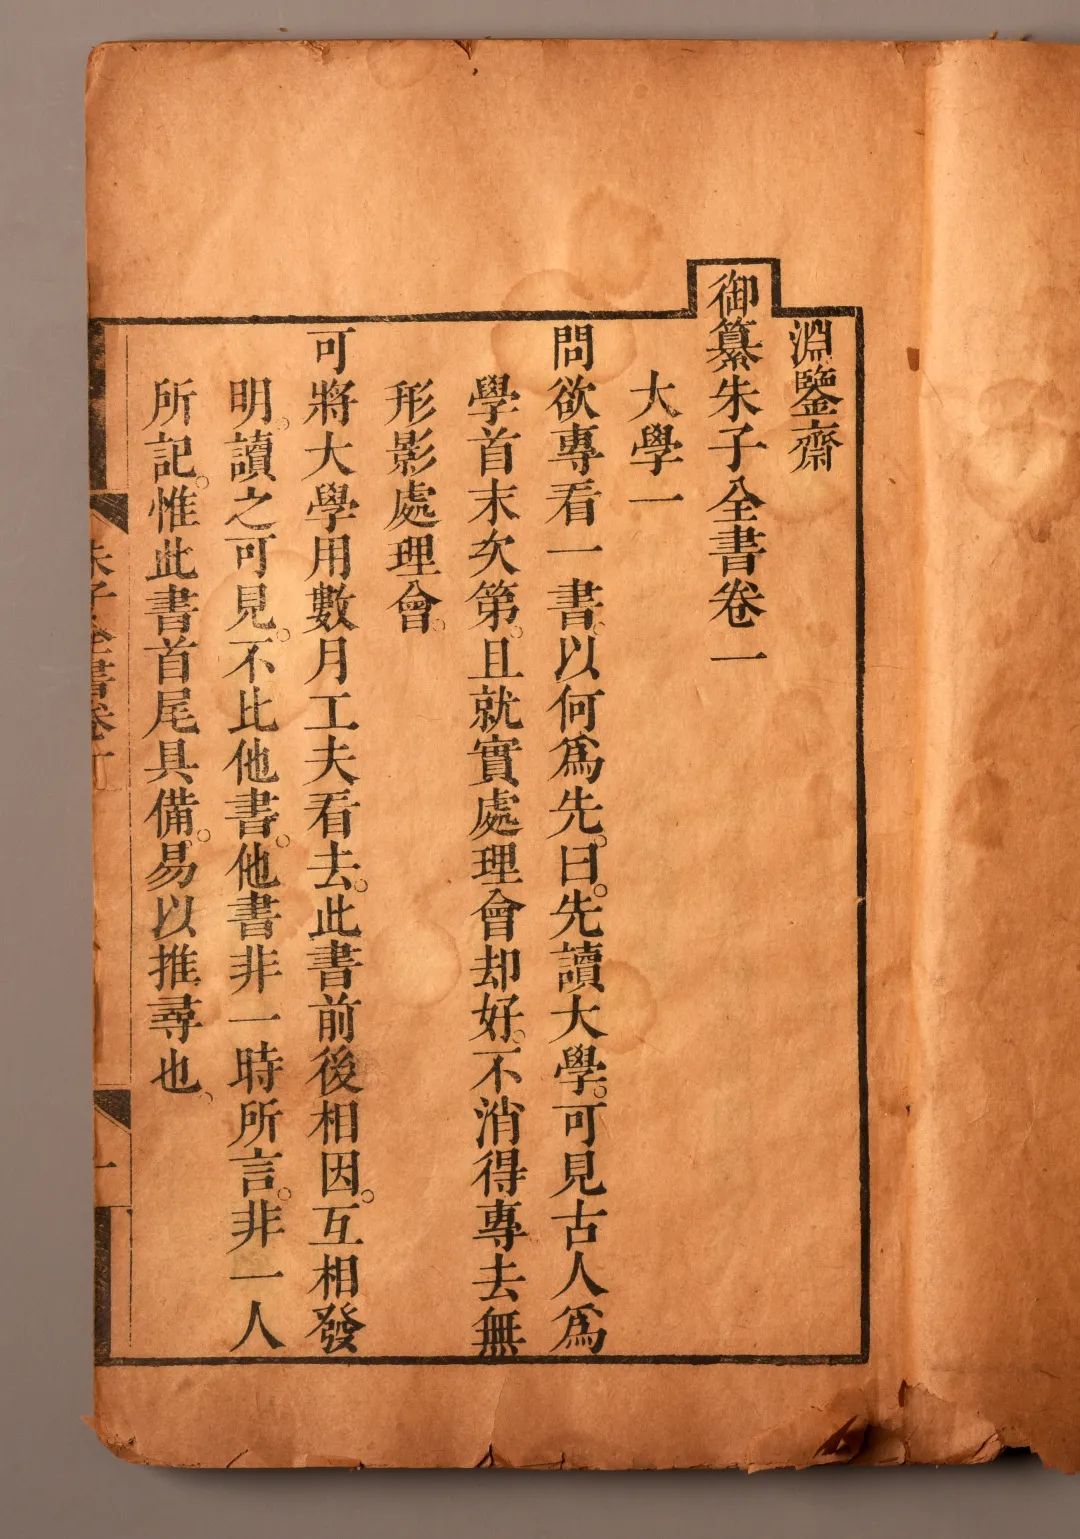 淵鑒齋
御纂朱子全書卷一
大學一
問欲專看一書。以何爲先。曰。先讀大學。可見古人爲
學首末次第。且就實處理會却好。不消得專去無
形影處理會。
可將大學用數月工夫看去。此書前後相因。互相發
明。讀之可見。不比他書。他書非一時所言。非一人
所記。惟此書首尾具備。易以推尋也、
朱子全書卷
一